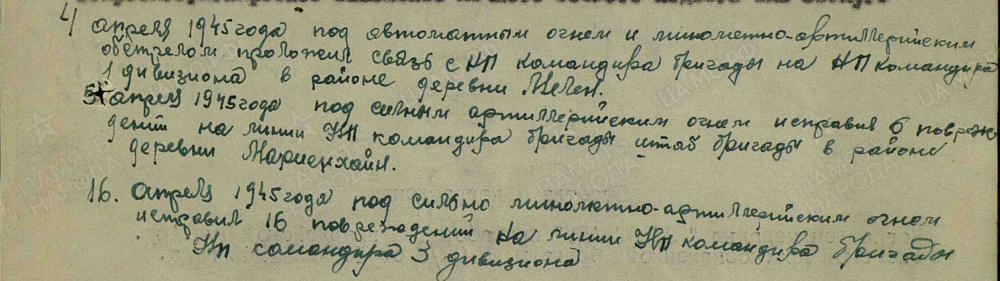 4 апреля 1945 года под автоматным огнем и минометно-артиллерийским
обстрелом проложил связь с НП командира бригады на НП командира
1 дивизиона в районе деревни Мечен.
5 апреля 1945 года под сильным артиллерийским огнем исправил 6 повреж-
дений на линии НП командира бригады штаб бригады в районе
деревни Мариенхайн.
16. апреля 1945 года под сильно минометно-артиллерийским огнем
исправил 16 повреждений на линии НП командира бригады
Нп командира 3 дивизиона